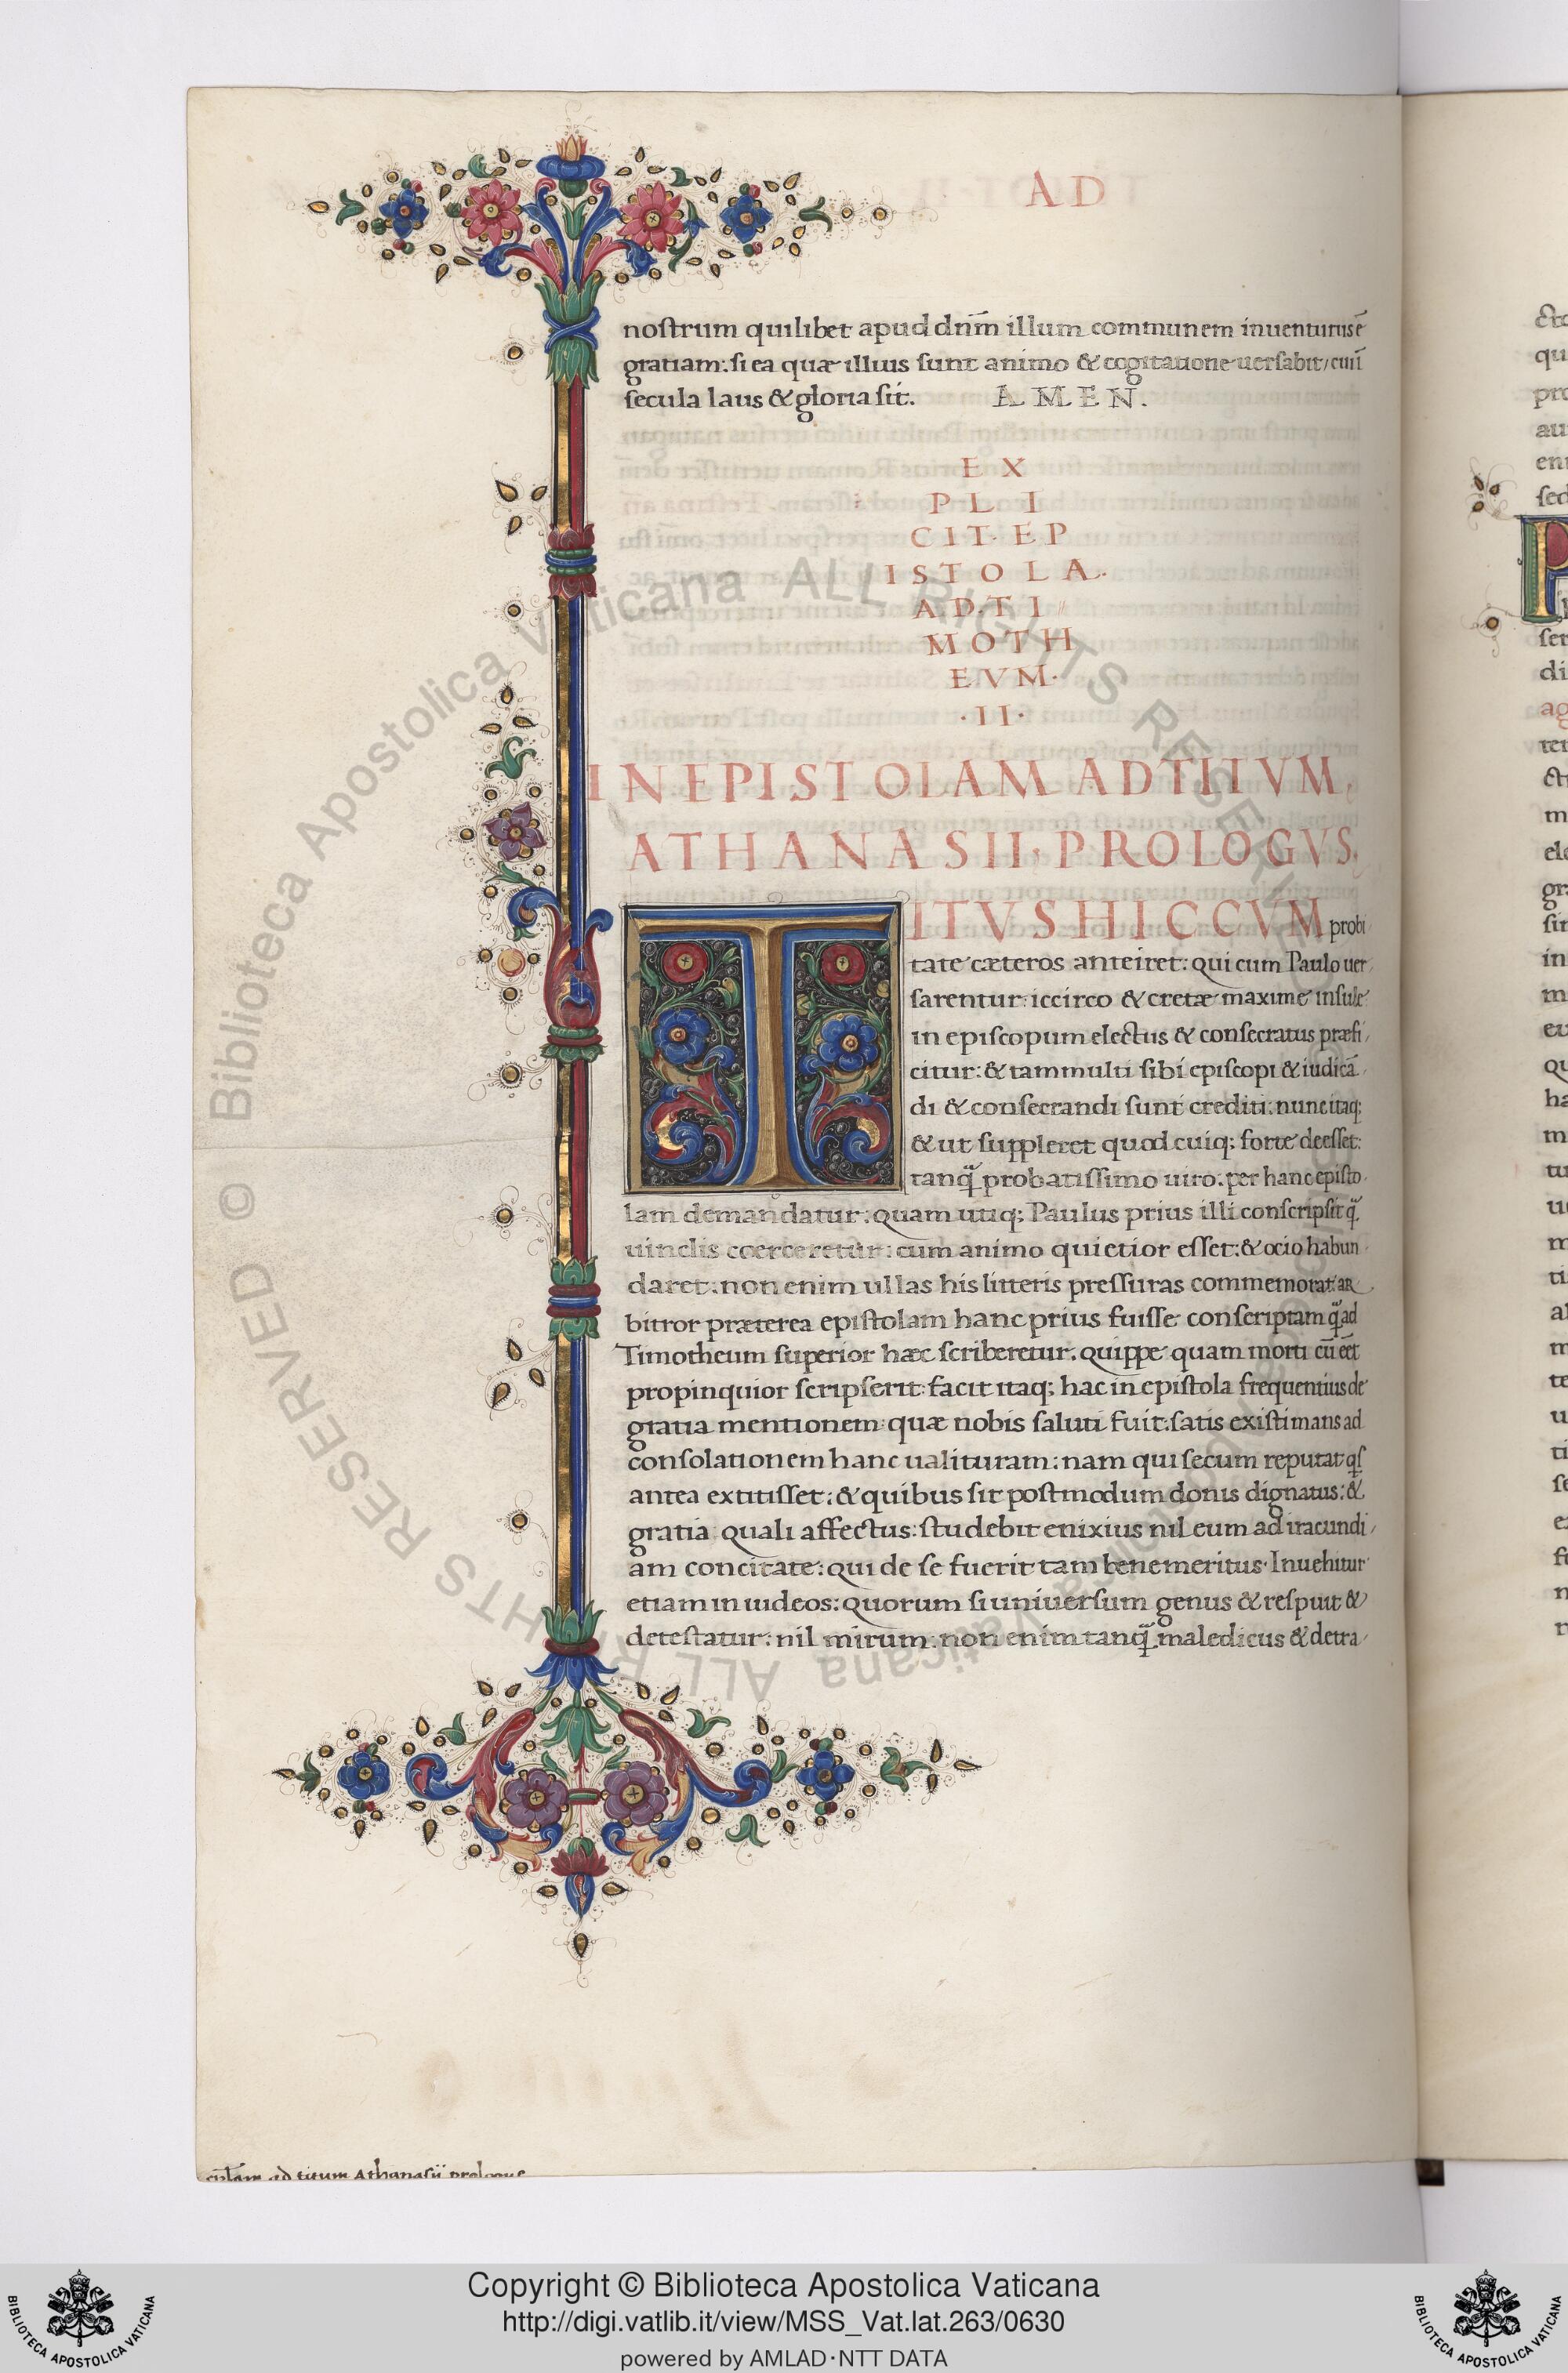 AD
nostrum quilibet apud dnm̄ illum communem inuenturus ē
gratiam: si ea quæ illius sunt animo & cogitatione uersabit / cui ī
secula laus & gloria sit. AMEN.
EX
PLI
CIT· EP
ISTOLA·
AD· TI
MOTH
EVM·
·II·
IN EPISTOLAM AD TITVM,
ATHANASII· PROLOGVS,
TITVS HIC CVM probi
tate cæteros anteiret: qui cum Paulo uer
sarentur: iccirco & cretæ maxime insule
in episcopum electus & consecratus præfi
citur: & tam multi sibi episcopi & iudicā
di & consecrandi sunt crediti: nunc itaq;
& ut suppleret quod cuiq; forte deesset:
tanq̃ probatissimo uiro: per hanc episto
lam demandatur: quam utiq; Paulus prius illi conscripsit q̃
uinclis coerceretur: cum animo quietior esset: & ocio habun
daret: non enim ullas his litteris pressuras commemorat: ar
bitror præterea epistolam hanc prius fuisse conscriptam q̃ ad
Timotheum superior hæc scriberetur. quippe quam morti cū eēt
propinquior scripserit: facit itaq; hac in epistola frequentius de
gratia mentionem: quæ nobis saluti fuit: satis existimans ad
consolationem hanc ualituram: nam qui secum reputat qs
antea extitisset: & quibus sit postmodum donis dignatus: &
gratia quali affectus: studebit enixius nil eum ad iracundi
am concitare: qui de se fuerit tam bene meritus· Inuehitur
etiam in iudeos: quorum si uniuersum genus & respuit &
detestatur: nil mirum: non enim tanq̃ maledicus & detra
ad titum Athanasii prologus
© Biblioteca Apostolica Vaticana ALL RIGHTS RESERVED
Copyright © Biblioteca Apostolica Vaticana
http://digi.vatlib.it/view/MSS_Vat.lat.263/0630
powered by AMLAD·NTT DATA
BIBLIOTECA APOSTOLICA VATICANA
BIBLIOTECA APOSTOLICA VATICANA